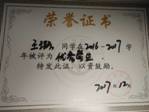 荣誉证书
同学在2016-2017学
年被评为优秀学生
特发此证，以资鼓励。
2017年12月